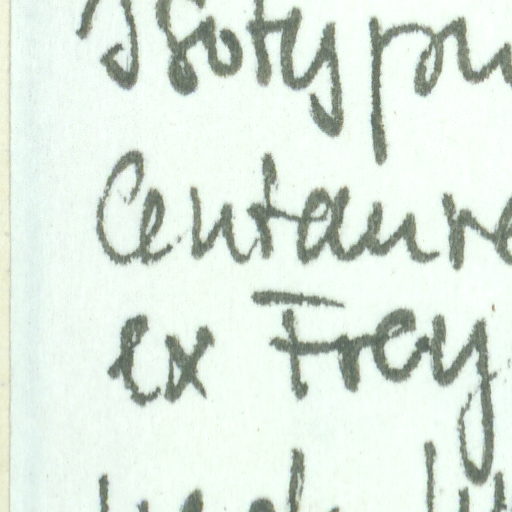 Isotypu
Centaure
ex Frey